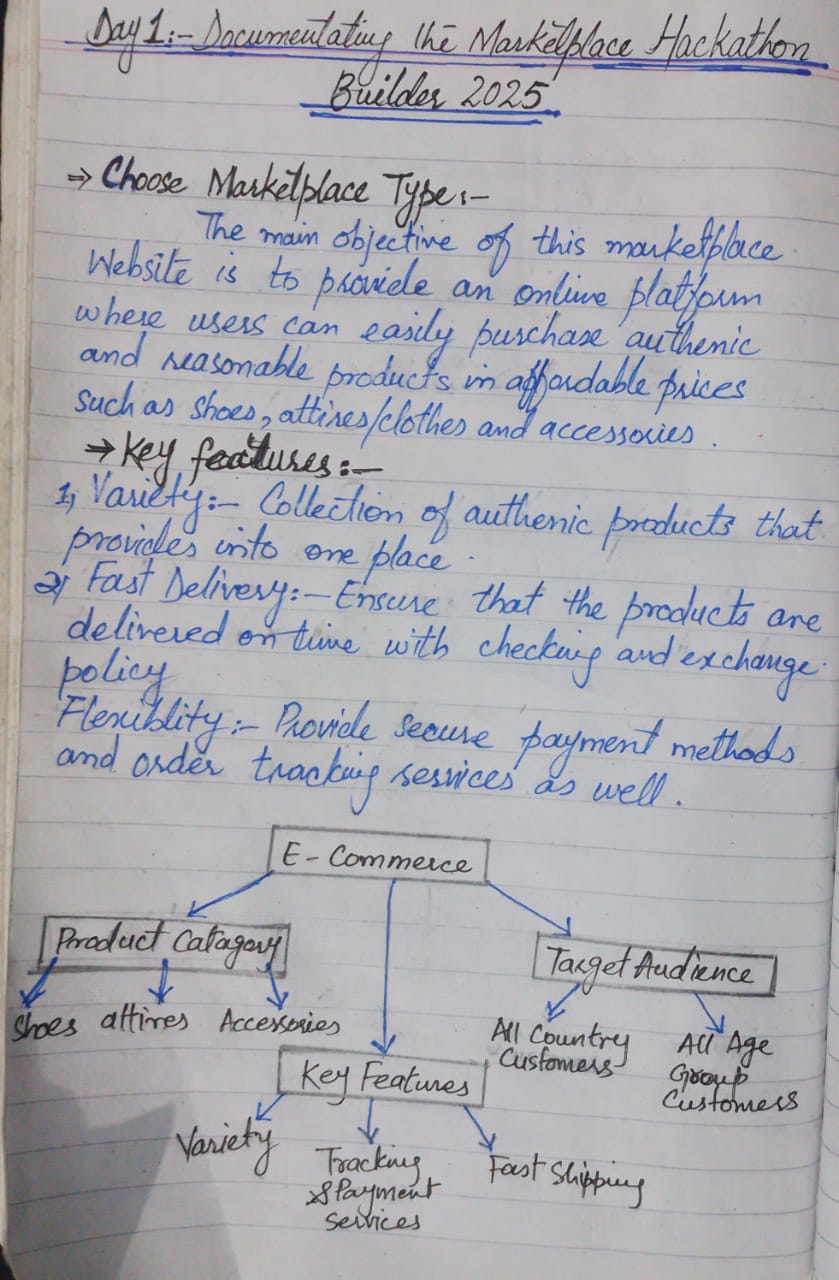 Day 1:- Documentating the Marketplace Hackathon
Builder 2025
⇒ Choose Marketplace Type:-
The main objective of this marketplace
Website is to provide an online platform
where users can easily purchase authenic
and reasonable products in affordable prices
such as shoes, attires/clothes and accessories.
→ Key features:-
1, Variety:- Collection of authenic products that
provides into one place.
2, Fast Delivery:- Ensure that the products are
delivered on time with checking and exchange
policy
Flexiblity:- Provide secure payment methods
and order tracking services as well.
E-Commerce
Product Catagory
Target Audience
Shoes attires Accessories
All Country
Customers
All Age
Group
Customers
Key Features
Variety
Tracking
& Payment
services
Fast Shipping